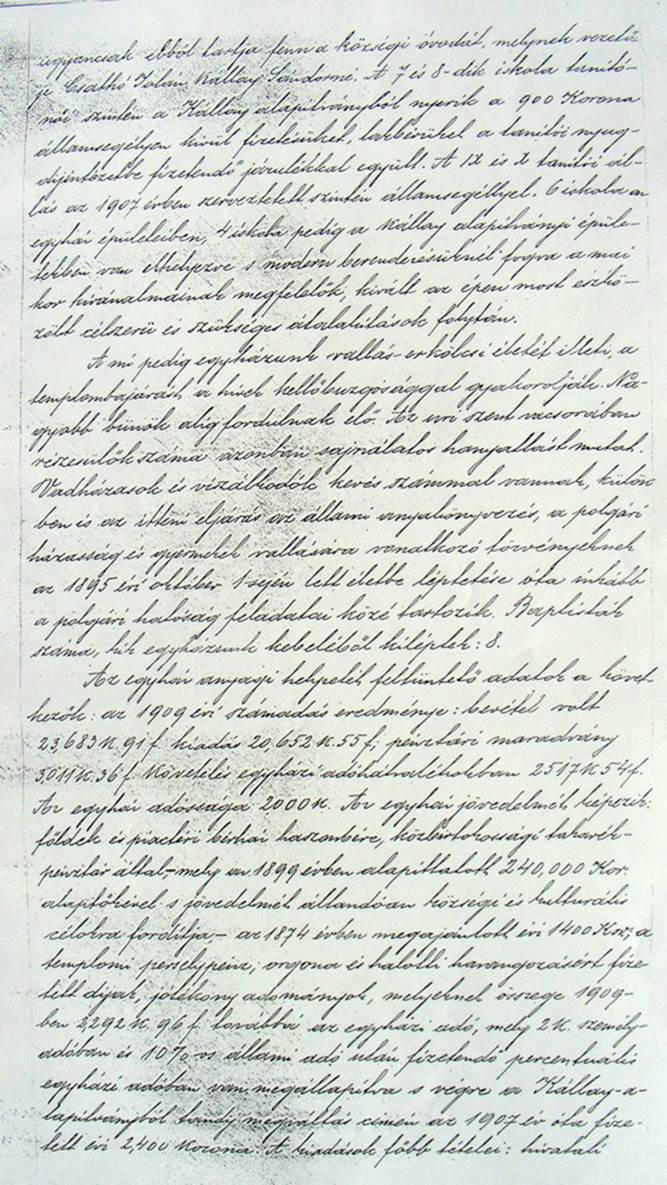 ugyancsak ebből tartja fenn a községi óvodát, melynek vezető-
je Csathó Jolán Kállay Sándorné. A 7 és 8-dik iskola tanító-
női szintén a Kállay alapítványból nyerik a 900 Korona
államsegélyen kívül fizetésüket, lakbérüket a tanítói nyug-
díjintézetbe fizetendő járulékkal együtt. A IX és X tanítói ál-
lás az 1907 évben szerveztetett szintén államsegéllyel. 6 iskola az
egyház épületeiben, 4 iskola pedig a Kállay alapítványi épüle-
tekben van elhelyezve s modern berendezésüknél fogva a mai
kor kívánalmainak megfelelők, kivált az épen most eszkö-
zölt célszerű és szükséges átalakítások folytán.
A mi pedig egyházunk vallás-erkölcsi életét illeti, a
templombajárást a hívek kellő buzgósággal gyakorolják. Na-
gyobb bűnök alig fordulnak elő. Az úri szent vacsorában
részesülők száma azonban sajnálatos hanyatlást mutat.
Vadházasok és vizálkodók kevés számmal vannak, külön-
ben is az itteni eljárás az állami anyakönyvezés, a polgári
házasság és gyermekek vallására vonatkozó törvényeknek
az 1895 évi október 1-sején lett életbe léptetése óta inkább
a polgári hatóság feladatai közé tartozik. Baptisták
száma, kik egyházunk kebeléből kiléptek: 8.
Az egyház anyagi helyzetét feltüntető adatok a követ-
kezők: az 1909 évi számadás eredménye: bevétel volt
23,683 K. 91 f. kiadás 20,652 K. 55 f; pénztári maradvány
3,011 K. 36 f. Követelés egyházi adóhátralékokban 2517 K 54 f.
Az egyház adóssága 2000 K. Az egyház jövedelmét képezik:
földek és piactéri bérház haszonbére, közbirtokossági takarék-
pénztár által,- mely az 1899 évben alapíttatott 240,000 Kor.
alaptőkével s jövedelmét állandóan községi és kulturális
célokra fordítja – az 1874 évben megajánlott évi 1400 Kor; a
templomi perselypénz, orgona és halotti harangozásért fize-
tett díjak, jótékony adományok, melyeknek összege 1909-
ben 2,292 K. 96 f. továbbá az egyházi adó, mely 2 K. személy-
adóban és 10%-os állami adó után fizetendő percentuális
egyházi adóban van megállapítva s végre a Kállay-a-
lapítványból tandíj megváltás címén az 1907 év óta fize-
tett évi 2,400 korona. A kiadások főbb tételei: hivatali